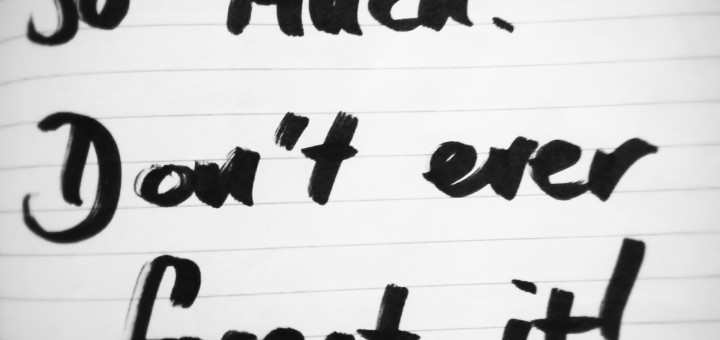 so much.
Don't ever
forget it!